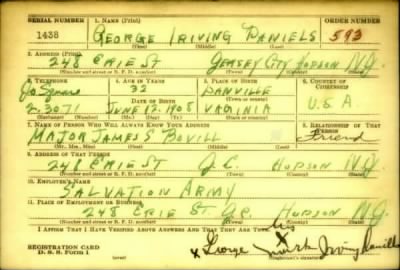 SERIAL NUMBER 1. NAME (Print) ORDER NUMBER
1438 GEORGE IRIVING DANIELS 593
(First) (Middle) (Last)
2. ADDRESS (Print)
248 ERIE ST JERSEY CITY HUDSON N.J.
(Number and street or R. F. D. number) (Town) (County) (State)
3. TELEPHONE 4. AGE IN YEARS 5. PLACE OF BIRTH 6. COUNTRY OF CITIZENSHIP
Jo. Square 32 DANVILLE
DATE OF BIRTH (Town or county) U.S.A.
2-3071 JUNE 17-1908 VARGINIA
(Exchange) (Number) (Mo.) (Day) (Yr.) (State or country)
7. NAME OF PERSON WHO WILL ALWAYS KNOW YOUR ADDRESS 8. RELATIONSHIP OF THAT PERSON
MAJOR JAMES S BOVILL Friend
(Mr., Mrs., Miss) (First) (Middle) (Last)
9. ADDRESS OF THAT PERSON
248 ERIE ST J.C. HUDSON N.J.
(Number and street or R. F. D. number) (Town) (County) (State)
10. EMPLOYER'S NAME
SALVATION ARMY
11. PLACE OF EMPLOYMENT OR BUSINESS
248 ERIE ST. J.C. HUDSON N.J.
(Number and street or R. F. D. number) (Town) (County) (State)
I AFFIRM THAT I HAVE VERIFIED ABOVE ANSWERS AND THAT THEY ARE TRUE.
his
X
REGISTRATION CARD
D. S. S. Form 1 x George mark Irving Daniels
(Registrant's signature)